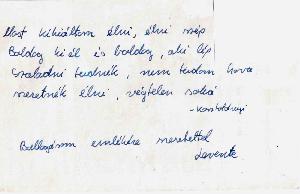 Most kikiáltom élni, élni szép
Boldog ki él is boldog, aki lép
Szaladni tudnék, nem tudom hova
szeretnék élni, végtelen soká
-Kosztolányi
emlékére szeretettel
Levente